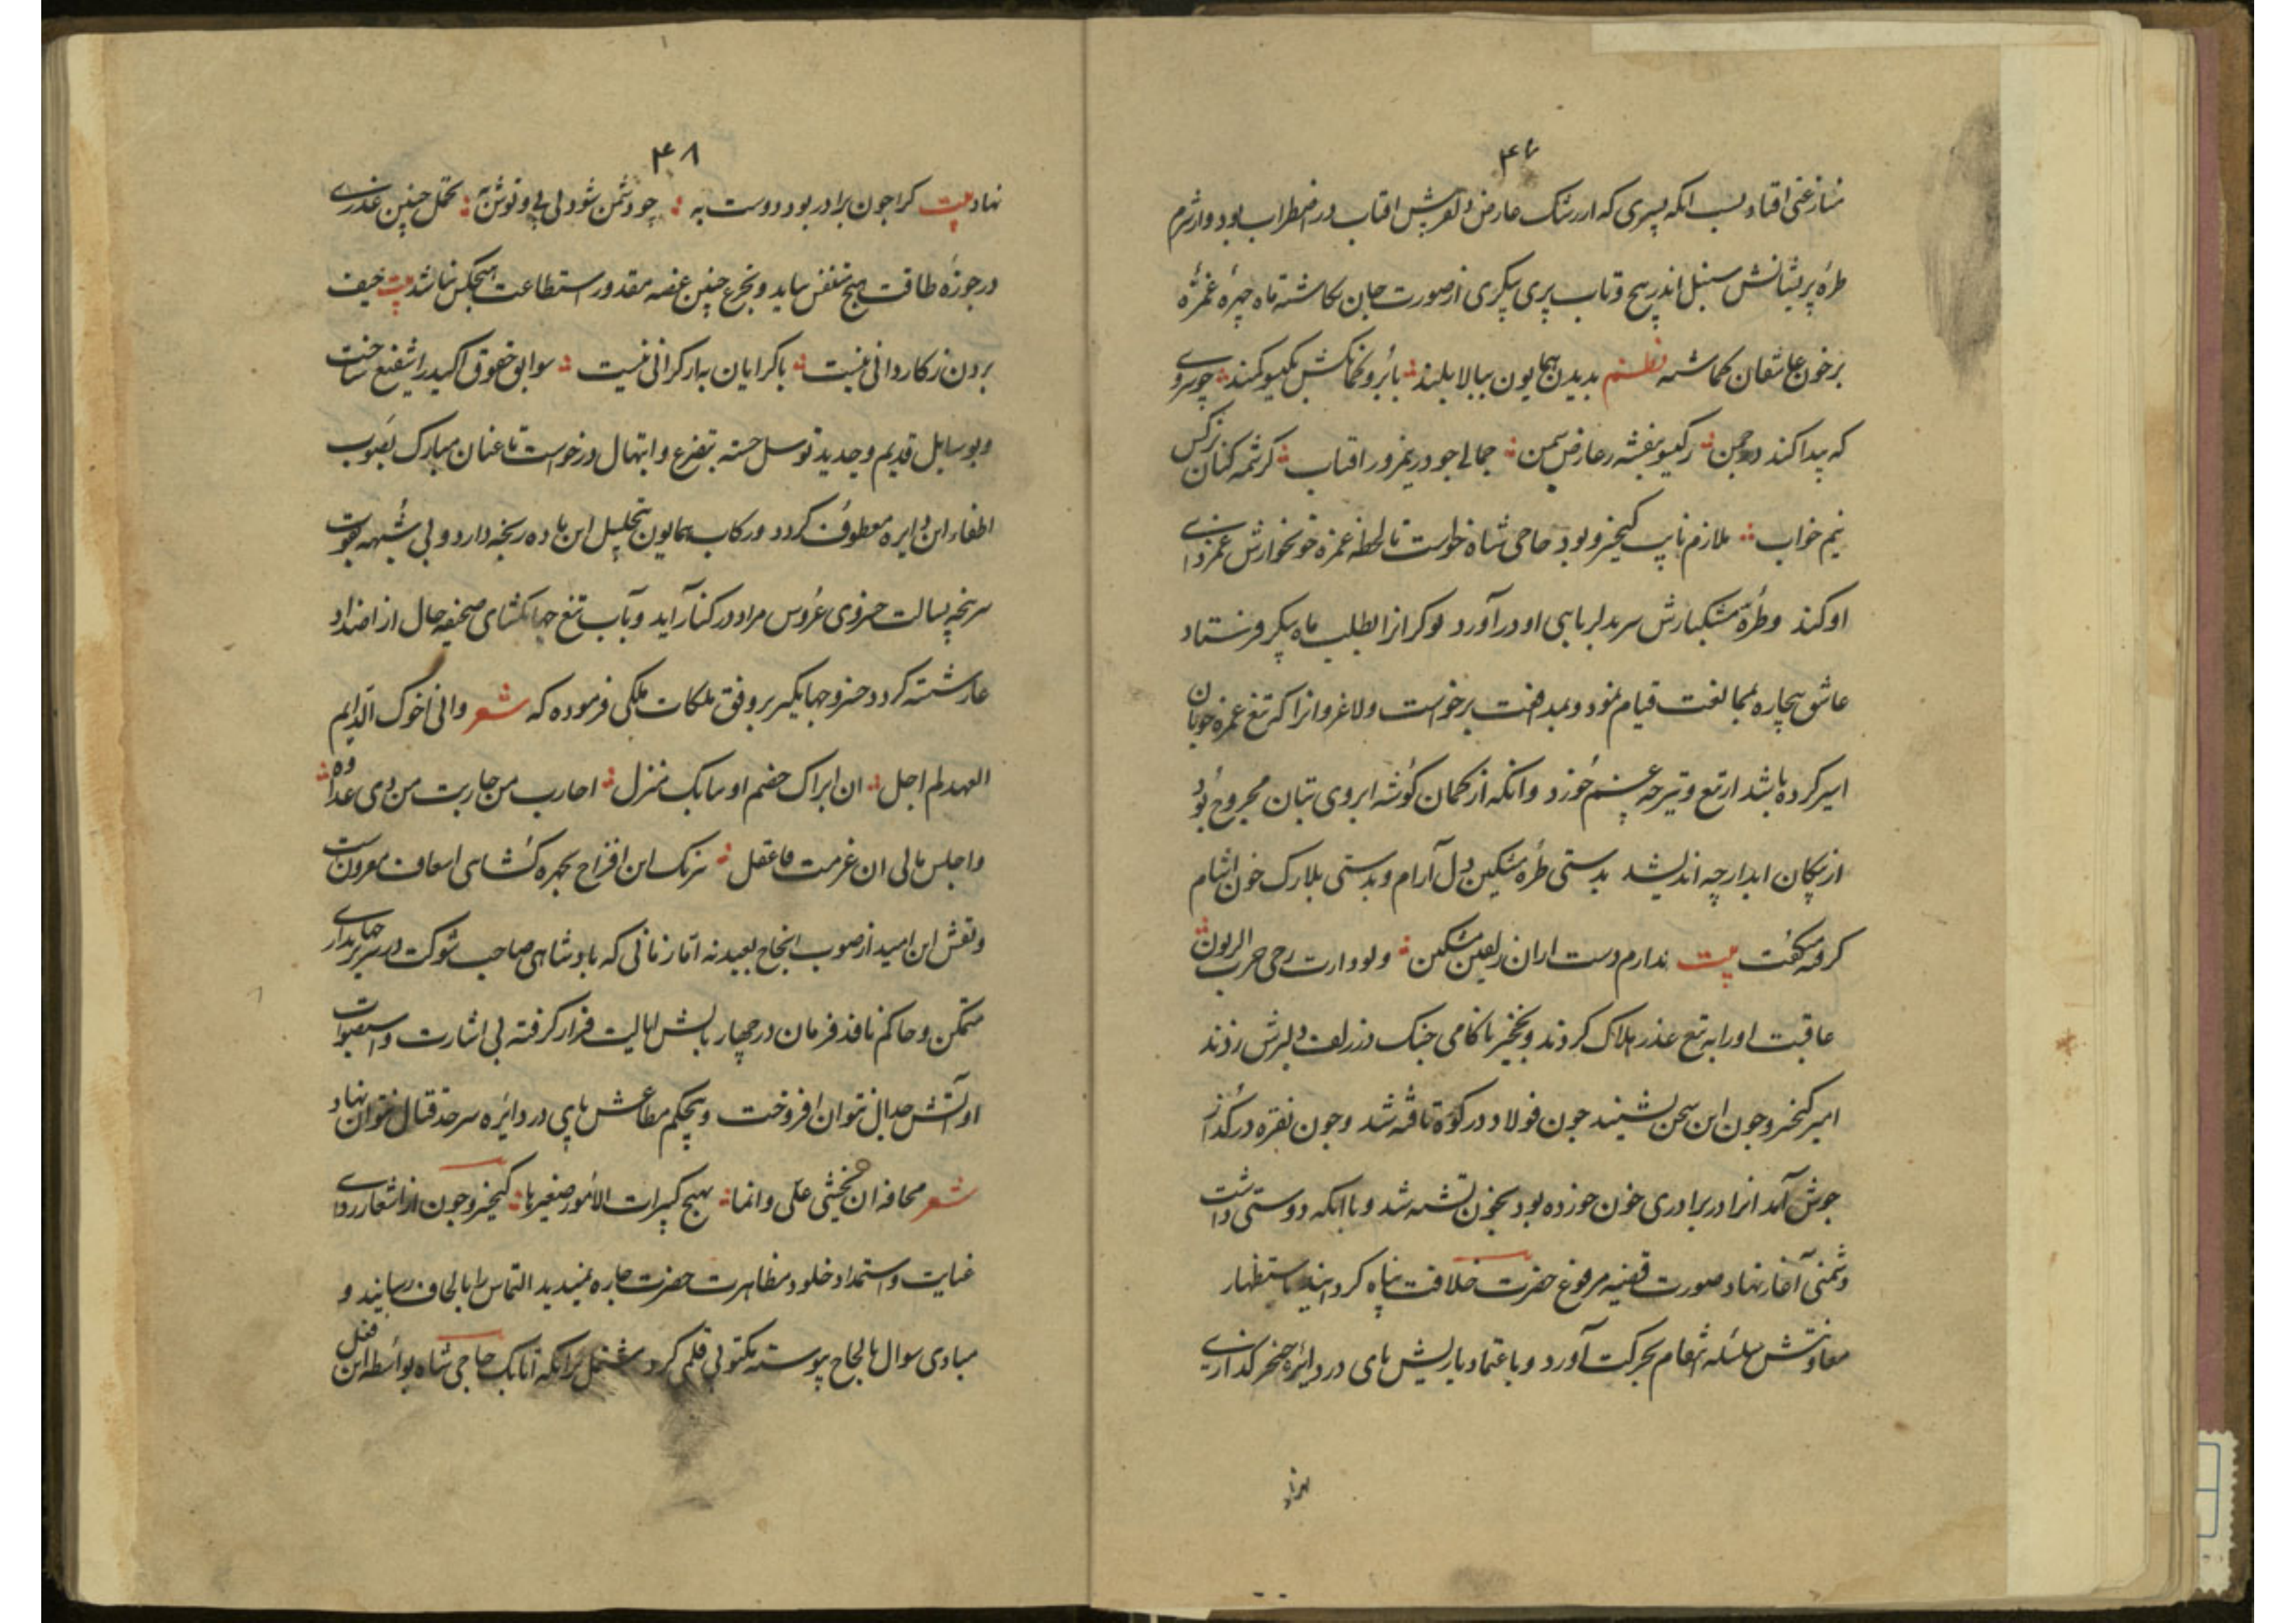 ۴۷
منازعتی افتاد بسب انکه پسری که از رشک عارض دلفریبش افتاب در اضطراب بود و از شرم
طره پریشانش سنبل اندر پیچ و تاب پری پیکری از صورت جان نکاشته ماه چهره غمزه
بر خون عاشقان کماشته نظم بدیدن همایون ببالا بلند بابرو کمانکش بکیسو کمند چو سروی
که پیدا کند در چمن ز کیسو بنفشه ز عارض سمن جمالی جو در نیمروز افتاب کرشمه کنان نرکس
نیم خواب ملازم کیخسرو بود حاجی شاه خواست تا لحظه غمزه خونخوارش غمزدای
او کند و طره مشکبارش سر بدلربایی او در آورد نوکرانرا بطلب ماه پیکر فرستاد
عاشق بیچاره بممانعت قیام نمود و بمدافعت برخواست ولاغرو انرا که تیغ غمزه خوبان
اسیر کرده باشد از تیغ و تیر چه غم خورد و انکه از کمان کوشه ابروی بتان مجروح بود
از پیکان ابدار چه اندیشد بدستی طره مشکین دل آرام و بدستی بلارک خون اشام
کرفته میکفت بیت ندارم دست از ان زلفین مشکین ولو دارت رحی حرب الزبون
عاقبت او را به تیغ غدر هلاک کردند و بخنجر ناکامی چنک در زلف دلبرش زدند
امیر کیخسرو جون این سخن بشنید جون فولاد در کوره تافته شد و جون نقره در کداز
جوش آمد انرا در برادری خون خورده بود بخون تشنه شد و با انکه دوستی داشت
دشمنی آغاز نهاد و صورت قضیه مرفوع حضرت خلافت پناه کردانید باستظهار
معاونتش سلسله انتقام بحرکت آورد و باعتماد یاریش پای در دایره خنجر کذاری
نهاد
۴۸
نهاد بیت کرا جون برادر بود دوست به چو دشمن شود بی پی و توش به تحمل چنین غدری
در حوزه طاقت هیچ متنفس نیاید و تجرع چنین غصه مقدور استطاعت هیچکس نباشد بیت حیف
بردن ز کاروانی نیست با کرانان به از کرانی نیست سوابق حقوق اکید را شفیع ساخت
و بوسایل قدیم و جدید توسل جسته بتضرع و ابتهال درخواست تا عنان مبارک بصوب
اطفاء این دایره معطوف کردد و رکاب همایون بتحلیل این ماده رنجه دارد و بی شبهه بقوت
سرپنجه بسالت خسروی عروس مراد در کنار آید و بآب تیغ جهانکشای صحیفه حال از اضداد
عار شسته کردد خسرو جهانکیر بر وفق ملکات ملکی فرموده که شعر وانی اخوک الدایم
العهد لم احل ان ابراک خصم او نبابک منزل احارب من حاربت من ذی عداوه
واحبس مالی ان غرمت فاعقل نیرنک این اقتراح بچهره کشای اسعاف مقرونست
و نقش این امید از صوب انجاح بعید نه اما زمانی که بادشاهی صاحب شوکت در سریر جهانداری
متمکن و حاکم نافذ فرمان در چهار بالش ایالت قرار کرفته بی اشارت و استصواب
او آتش جدال نتوان افروخت و بیحکم مطاعش پای در دایره سرحد قتال نتوان نهاد
شعر مخافه ان تجنی علی وانما یهیج کبیرات الامور صغیرها کیخسرو جون از اشعار ردای
عنایت و استمداد خلود مظاهرت حضرت چاره ندید التماس را بالحاف رسانید و
مبادی سوال بالحاح پیوسته مکتوبی قلمی کرد مشتمل برانکه اتابک حاجی شاه بواسطه این فعل